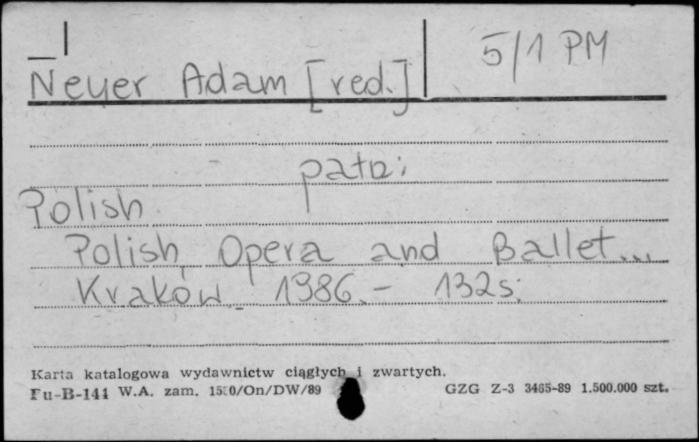 Neuer Adam [red.] 5/1 PM
patrz:
Polish
Polish Opera and Ballet...
Kraków 1986.- 132s.
Karta katalogowa wydawnictw ciągłych i zwartych.
Pu-B-144 W.A. zam. 1520/On/DW/89 GZG Z-3 3465-89 1.500.000 szt.